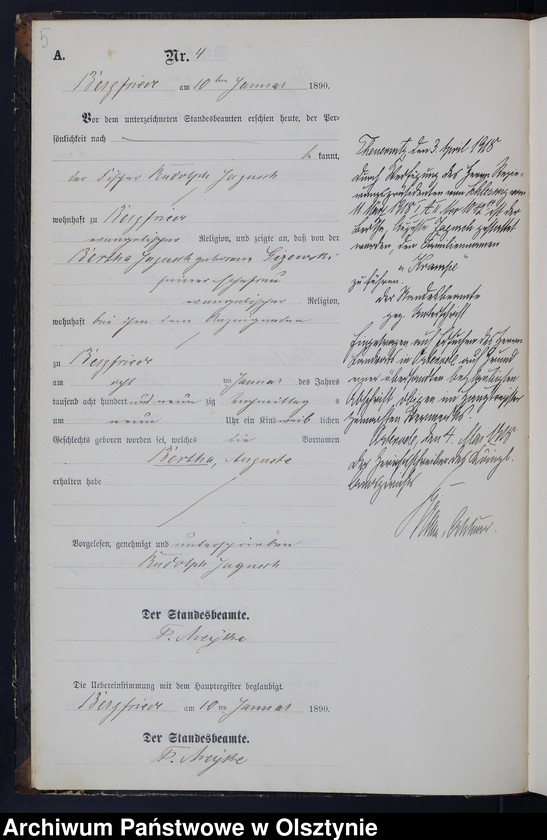 5
A.
Nr. 4
Bergfriede am 10ten Januar 1890.
Vor dem unterzeichneten Standesbeamten erschien heute, der Per-
sönlichkeit nach
be kannt,
der Fischer Rudolph Jagusch
wohnhaft zu Bergfriede
evangelischer Religion, und zeigte an, daß von der
Bertha Jagusch geborene
seiner Ehefrau
evangelischer Religion,
wohnhaft bei ihm dem Anzeigenden
zu Bergfriede
am acht ten Januar des Jahres
tausend acht hundert und neun zig Nachmittag s
um neun Uhr ein Kind weib lichen
Geschlechts geboren worden sei, welches die Vornamen
Bertha, Auguste
erhalten habe
Vorgelesen, genehmigt und unterschrieben
Rudolph Jagusch
Der Standesbeamte.
Die Uebereinstimmung mit dem Hauptregister beglaubigt.
Bergfriede am 10ten Januar 1890.
Der Standesbeamte.
den 3. April 1918
Durch Verfügung des Herrn Regie-
rungspräsidenten vom
ist der
Bertha, Auguste Jagusch gestattet
worden, den Familiennamen
zu führen.
Der Standesbeamte
gez. Unterschrift
Eingetragen auf Ersuchen des Herrn
Landrats in Osterode auf Grund
einer übersandten beglaubigten
Abschrift
Vermerkes.
Osterode, den 4. Mai 1918
Der Gerichtsschreiber des Königl.
Amtsgerichts
Archiwum Państwowe w Olsztynie